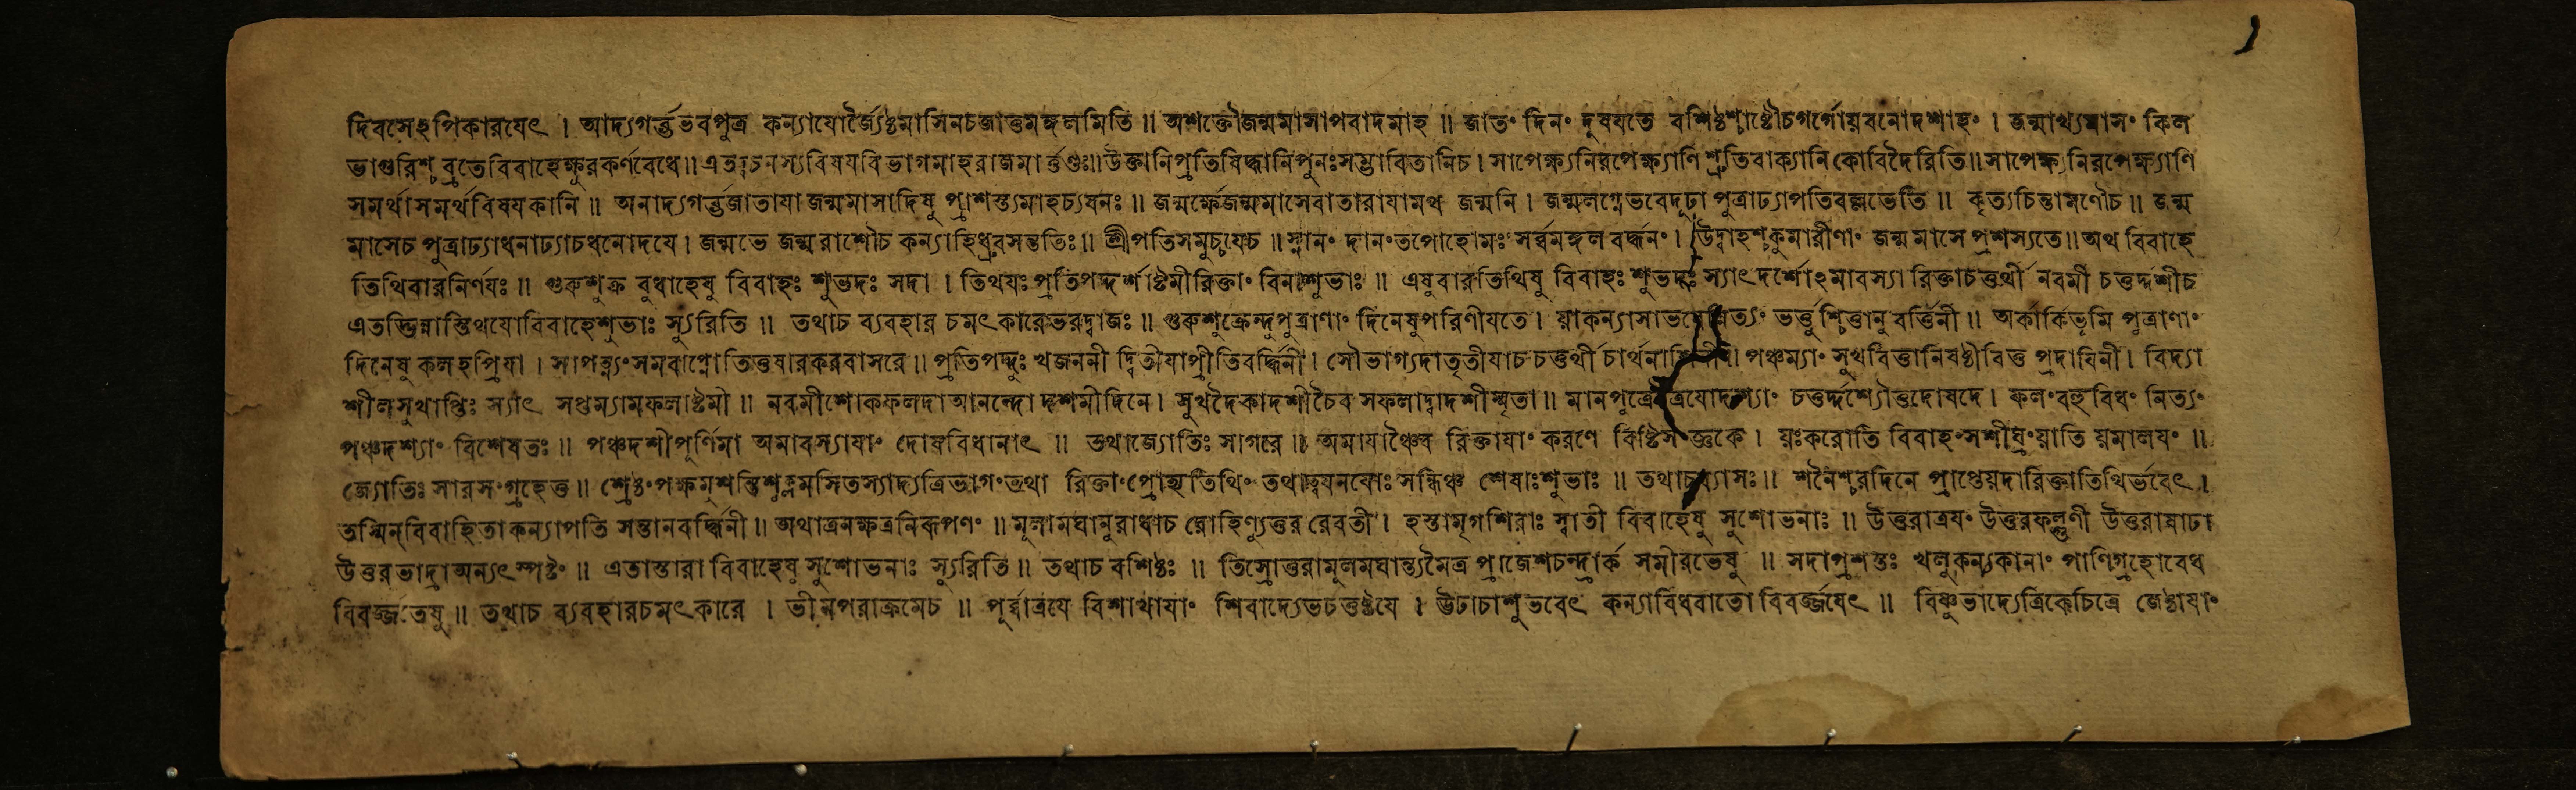 দিবসেঽপিকারযেৎ । আদ্যগর্ত্তভবপুত্র কন্যাযোর্জ্যৈষ্ঠমাসিনচজাতুমঙ্গলমিতি ॥ অশক্তৌজন্মমাসাপবাদমাহ ॥ জাতং দিনং দুষযতে বশিষ্ঠশ্চাষ্টৌচগর্গোয়বনোদশাহং । জন্মাখ্যমাসং কিল
ভাগুরিশ্চ ব্রতেবিবাহেক্ষুরকর্ণবেধে॥ এতদ্বচনস্যবিষযবিভাগমাহরাজমার্ত্তণ্ডঃ॥ উক্তানিপ্রতিষিদ্ধানিপুনঃসম্ভাবিতানিচ । সাপেক্ষ্যনিরপেক্ষ্যাণি শ্রুতিবাক্যানি কোবিদৈরিতি॥ সাপেক্ষ্যনিরপেক্ষ্যাণি
সমর্থাসমর্থবিষযকানি ॥ অনাদ্যগর্ত্তজাতাযা জন্মমাসাদিষু প্রাশস্ত্যমাহচ্যবনঃ ॥ জন্মর্ক্ষেজন্মমাসেবাতারাযামথ জন্মনি । জন্মলগ্নেভবেদূঢা পুত্রাঢ্যাপতিবল্লভেতি ॥ কৃত্যচিন্তামণৌচ ॥ জন্ম
মাসেচ পুত্রাঢ্যাধনাঢ্যাচধনোদযে । জন্মভে জন্মরাশৌচ কন্যাহিধ্রুবসন্ততিঃ ॥ শ্রীপতিসমুচ্চযেচ ॥ স্নানং দানংতপোহোমঃ সর্ব্বমঙ্গল বর্দ্ধনং । উদ্বাহশ্চকুমারীণাং জন্মমাসে প্রশস্যতে॥ অথ বিবাহে
তিথিবারনির্ণযঃ ॥ গুরুশুক্র বুধাহেষু বিবাহঃ শুভদঃ সদা । তিথযঃ প্রতিপদ্দর্শাষ্টমীরিক্তাং বিনাশুভাঃ ॥ এষুবারতিথিষু বিবাহঃ শুভদঃ স্যাৎ দর্শোঽমাবস্যা রিক্তাচতুর্থী নবমী চতুর্দ্দশীচ
এতদ্ভিন্নাস্তিথযোবিবাহেশুভাঃ স্যুরিতি ॥ তথাচ ব্যবহার চমৎকারেভরদ্বাজঃ ॥ গুরুশুক্রেন্দুপুত্রাণাং দিনেষুপরিণীযতে । য়াকন্যাসাভবেন্নিত্যং ভর্ত্তুশ্চিত্তানুবর্ত্তিনী ॥ অর্কার্কিভূমি পুত্রাণাং
দিনেষু কলহপ্রিযা । সাপত্ন্যংসমবাপ্নোতিতুষারকরবাসরে ॥ প্রতিপদ্দুঃ খজননী দ্বিতীযাপ্রীতিবর্দ্ধিনী । সৌভাগ্যদাতৃতীযাচ চতুর্থী চার্থনাশিনী॥ পঞ্চম্যাং সুখবিত্তানিষষ্ঠীবিত্ত প্রদাযিনী । বিদ্যা
শীলসুখাপ্তিঃ স্যাৎ সপ্তম্যামফলাষ্টমী ॥ নবমীশোকফলদাআনন্দো দশমীদিনে । সুখদৈকাদশীচৈব সফলাদ্বাদশীস্মৃতা ॥ মানপুত্রে ত্রযোদশ্যাং চতুর্দ্দশ্যৌতুদোষদে । ফলংবহুবিধং নিত্যং
পঞ্চদশ্যাং বিশেষতঃ ॥ পঞ্চদশীপূর্ণিমা অমাবস্যাযাং দোষবিধানাৎ ॥ তথাজ্যোতিঃ সাগরে ॥ অমাযাঞ্চৈব রিক্তাযাং করণে বিষ্টিসংজ্ঞকে । য়ঃকরোতি বিবাহংসশীঘ্রংয়াতি য়মালযং ॥
জ্যোতিঃ সারসংগ্রহেতু ॥ শ্রেষ্ঠংপক্ষমুশন্তিশুক্লমসিতস্যাদ্যত্রিভাগংতথা রিক্তাংপ্রোহ্যতিথিং তথাত্বযনযোঃ সন্ধিঞ্চ শেষাঃশুভাঃ ॥ তথাচব্যাসঃ॥ শনৈশ্চরদিনে প্রাপ্তেয়দারিক্তাতিথির্ভবেৎ ।
তস্মিন্বিবাহিতাকন্যাপতি সন্তানবর্দ্ধিনী ॥ অথাত্রনক্ষত্রনিরূপণং ॥ মূলামঘানুরাধাচ রোহিণ্যুত্তর রেবতী । হস্তামৃগশিরাঃ স্বাতী বিবাহেষু সুশোভনাঃ ॥ উত্তরাত্রযং উত্তরফল্গুণী উত্তরাষাঢা
উত্তরভাদ্রা অন্যৎস্পষ্টং ॥ এতাস্তারা বিবাহেষু সুশোভনাঃ স্যুরিতি ॥ তথাচ বশিষ্ঠঃ ॥ তিস্রোত্তরামূলমঘান্ত্যমৈত্র প্রাজেশচন্দ্রার্ক সমীরভেষু ॥ সদাপ্রশস্তঃ খলুকন্যকানাং পাণিগ্রহোবেধ
বিবর্জ্জতেষু ॥ তথাচ ব্যবহারচমৎকারে । ভীমপরাক্রমেচ ॥ পূর্ব্বাত্রযে বিশাখাযাং শিবাদ্যেভচতুষ্টযে । ঊঢাচাশুভবেৎ কন্যাবিধবাতো বিবর্জ্জযেৎ ॥ বিষ্ণুভাদ্যেত্রিকেচিত্রে জেষ্ঠাযাং